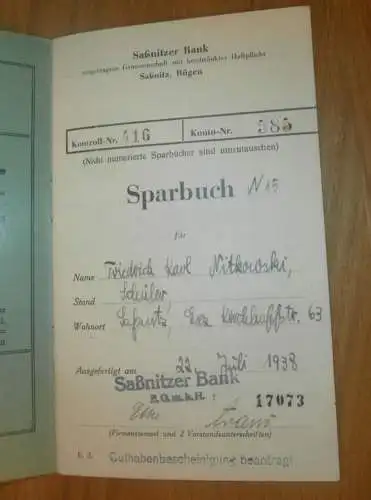 Saßnitzer Bank
eingetragene Genossenschaft mit beschränkter Haftpflicht
Saßnitz, Rügen
Kontroll-Nr. 416 Konto-Nr. 585
(Nicht numerierte Sparbücher sind umzutauschen)
Sparbuch N 15
für
Name Friedrich Karl Nitkowski,
Stand Schüler,
Wohnort Saßnitz, 63
Ausgefertigt am 22. Juli 1938
Saßnitzer Bank
e.G.m.b.H. 17073
(Firmenstempel und 2 Vorstandsunterschriften)
Guthabenbescheinigung beantragt